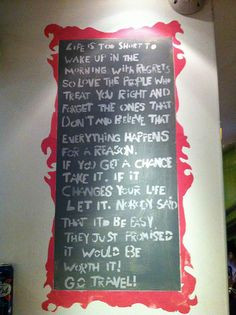 LIFE IS TOO SHORT TO
WAKE UP IN THE
MORNING WITH REGRETS
SO LOVE THE PEOPLE WHO
TREAT YOU RIGHT AND
FORGET THE ONES THAT
DON'T AND BELIEVE THAT
EVERYTHING HAPPENS
FOR A REASON.
IF YOU GET A CHANCE
TAKE IT. IF IT
CHANGES YOUR LIFE
LET IT. NOBODY SAID
THAT IT'D BE EASY
THEY JUST PROMISED
IT WOULD BE
WORTH IT!
GO TRAVEL!